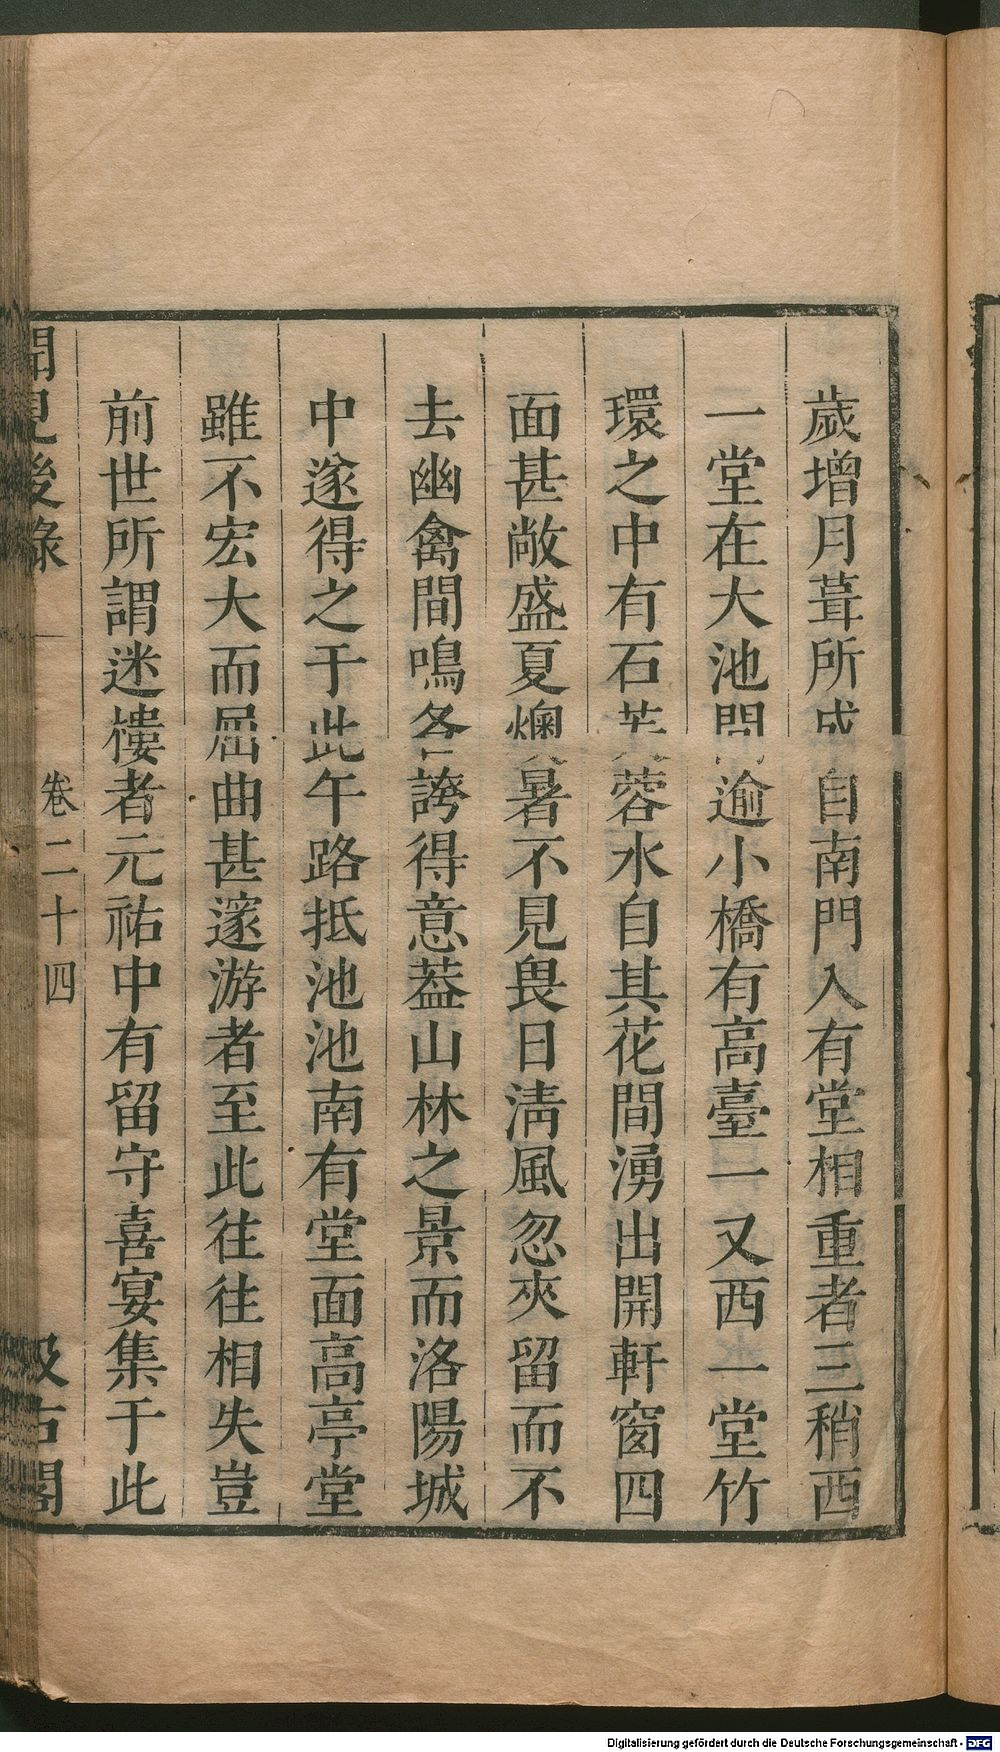 歲增月葺所成自南門入有堂相重者三稍西
一堂在大池間逾小橋有高臺一又西一堂竹
環之中有石芙蓉水自其花間湧出開軒窗四
面甚敞盛夏燠暑不見畏日清風忽來留而不
去幽禽間鳴各誇得意葢山林之景而洛陽城
中遂得之于此午路抵池池南有堂面高亭堂
雖不宏大而屈曲甚邃游者至此往往相失豈
前世所謂迷樓者元祐中有留守喜宴集于此
聞見後錄 卷二十四 汲古閣
Digitalisierung gefördert durch die Deutsche Forschungsgemeinschaft - DFG